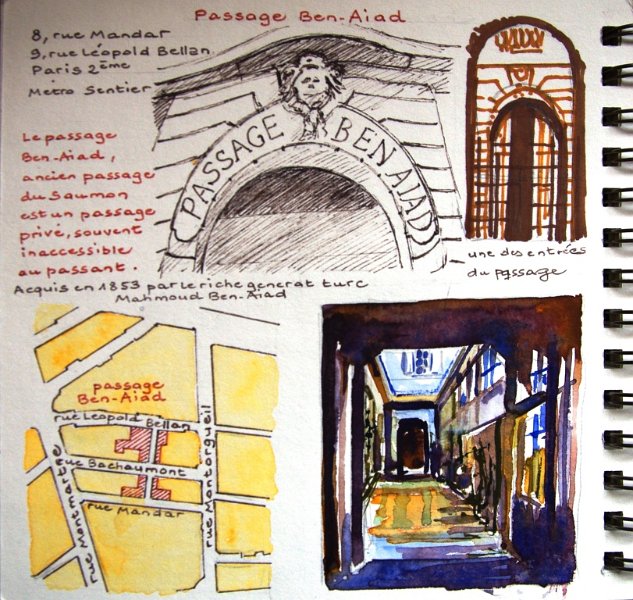 Passage Ben-Aiad
8, rue Mandar
9, rue Léopold Bellan
Paris 2ème
Metro Sentier
PASSAGE BEN AIAD
Le passage
Ben-Aiad,
ancien passage
du Saumon
est un passage
privé, souvent
inaccessible
au passant.
Acquis en 1853 par le riche general turc
Mahmoud Ben-Aiad
une des entrées
du passage
passage
Ben-Aiad
rue Léopold Bellan
rue Bachaumont
rue Mandar
rue Montmartre
rue Montorgueil